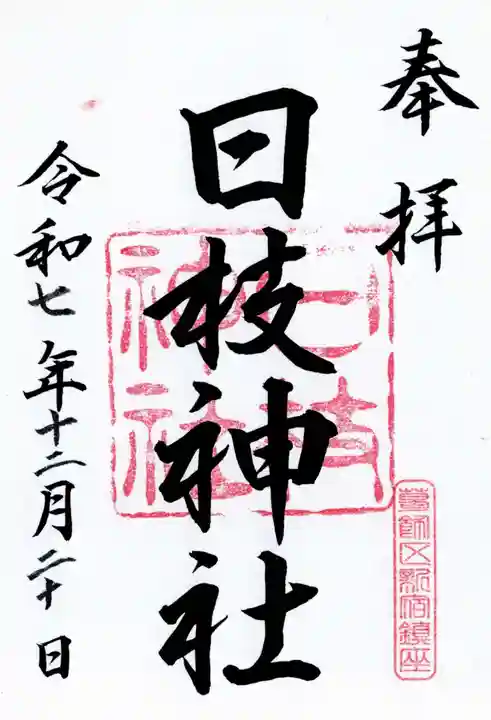 奉拝
葛飾区新宿鎮座
日枝神社
日枝
神社
令和七年十二月二十日